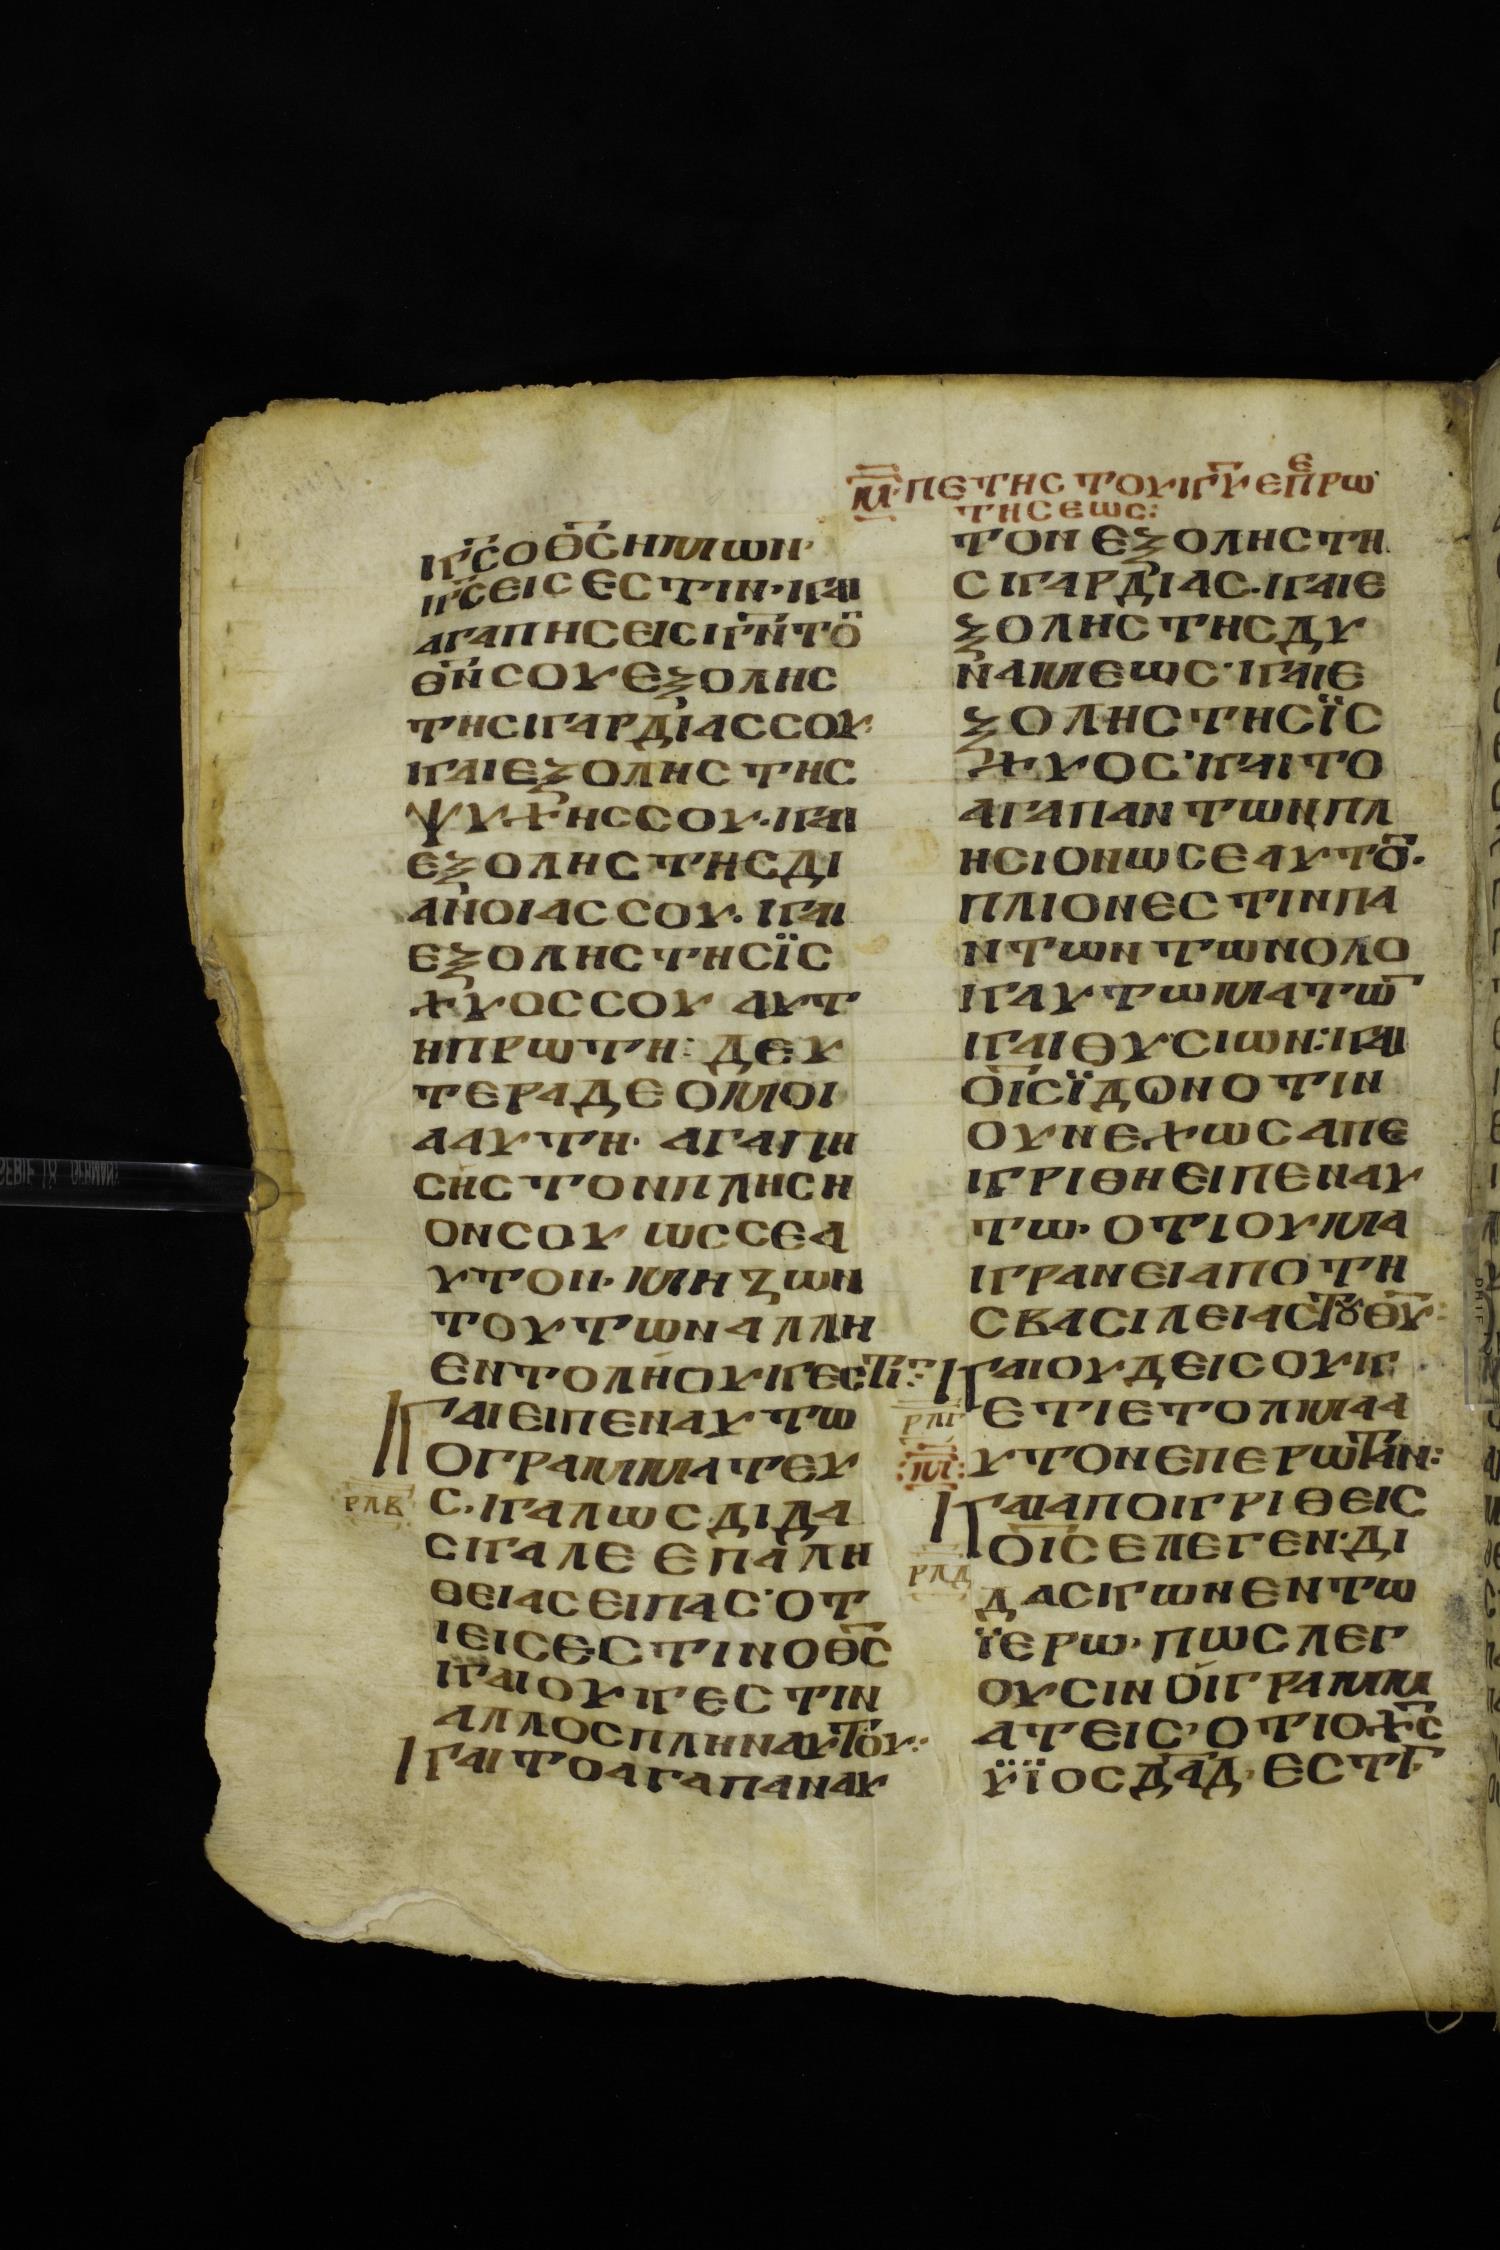 Μ̅·ΠΕΤΗС ΤΟΥ ΚΥ̅ ΕΠΕΡΩ
ΤΗСΕΩС:
ΚС̅ Ο ΘС̅ ΗΜΩΝ·
ΚС̅ ΕΙС ΕСΤΙΝ· ΚΑΙ
ΑΓΑΠΗСΕΙС ΚΝ̅ ΤΟ̅
ΘΝ̅ СΟΥ ΕΞ ΟΛΗС
ΤΗС ΚΑΡΔΙΑС СΟΥ·
ΚΑΙ ΕΞ ΟΛΗС ΤΗС
ΨΥΧΗС СΟΥ· ΚΑΙ
ΕΞ ΟΛΗС ΤΗС ΔΙ
ΑΝΟΙΑС СΟΥ· ΚΑΙ
ΕΞ ΟΛΗС ΤΗС ΪС
ΧΥΟС СΟΥ ΑΥΤ
Η ΠΡΩΤΗ: ΔΕΥ
ΤΕΡΑ ΔΕ ΟΜΟΙ
Α ΑΥΤΗ· ΑΓΑΠΗ
СΗС ΤΟΝ ΠΛΗСΗ
ΟΝ СΟΥ ΩС СΕΑ
ΥΤΟΝ· ΜΗΖΩΝ
ΤΟΥΤΩΝ ΑΛΛΗ
ΕΝΤΟΛΗ ΟΥΚ ΕСΤΙ̅:
ΚΑΙ ΕΙΠΕΝ ΑΥΤΩ
Ο ΓΡΑΜΜΑΤΕΥ
ΡΛΒ С· ΚΑΛΩС ΔΙΔΑ
СΚΑΛΕ ΕΠ ΑΛΗ
ΘΕΙΑС ΕΙΠΑС· ΟΤ
Ι ΕΙС ΕСΤΙΝ Ο ΘС̅
ΚΑΙ ΟΥΚ ΕСΤΙΝ
ΑΛΛΟС ΠΛΗΝ ΑΥΤΟΥ:
ΚΑΙ ΤΟ ΑΓΑΠΑΝ ΑΥ
ΤΟΝ ΕΞ ΟΛΗС ΤΗ
С ΚΑΡΔΙΑС· ΚΑΙ Ε
Ξ ΟΛΗС ΤΗС ΔΥ
ΝΑΜΕΩС· ΚΑΙ Ε
Ξ ΟΛΗС ΤΗС ΪС
ΧΥΟС· ΚΑΙ ΤΟ
ΑΓΑΠΑΝ ΤΩΝ ΠΛ
ΗСΙΟΝ ΩС ΕΑΥΤΟ̅·
ΠΛΙΟΝ ΕСΤΙΝ ΠΑ
ΝΤΩΝ ΤΩΝ ΟΛΟ
ΚΑΥΤΩΜΑΤΩ̅
ΚΑΙ ΘΥСΙΩΝ: ΚΑΙ
Ο ΙС̅ ΪΔΩΝ ΟΤΙ Ν
ΟΥΝΕΧΩС ΑΠΕ
ΚΡΙΘΗ ΕΙΠΕΝ ΑΥ
ΤΩ· ΟΤΙ ΟΥ ΜΑ
ΚΡΑΝ ΕΙ ΑΠΟ ΤΗ
С ΒΑСΙΛΕΙΑС ΤΟΥ ΘΥ̅:
ΚΑΙ ΟΥΔΕΙС ΟΥΚ
ΡΛΓ ΕΤΙ ΕΤΟΛΜΑ Α
Μ̅: ΥΤΟΝ ΕΠΕΡΩΤΑΝ:
ΚΑΙ ΑΠΟΚΡΙΘΕΙС
ΡΛΔ Ο ΙС̅ ΕΛΕΓΕΝ· ΔΙ
ΔΑСΚΩΝ ΕΝ ΤΩ
ΪΕΡΩ· ΠΩС ΛΕΓ
ΟΥСΙΝ ΟΙ ΓΡΑΜΜ
ΑΤΕΙС· ΟΤΙ Ο ΧС̅
ΫΪΟС ΔΑΔ̅· ΕСΤΙ̅